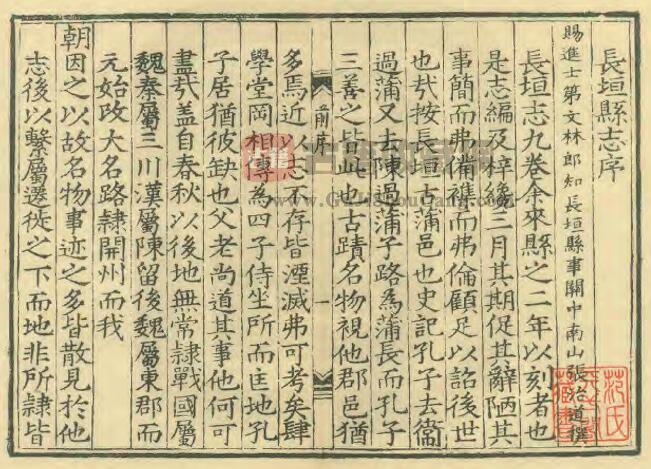 長垣縣志序
賜進士第文林郎知長垣縣事關中南山張治道撰
長垣志九卷余來縣之二年以刻者也
是志編及梓纔三月其期促其辭陋其
事簡而弗備襍而弗倫顧足以詒後世
也㦲按長垣古蒲邑也史記孔子去衞
過蒲又去陳過蒲子路為蒲長而孔子
三善之皆此也古蹟名物視他郡邑猶
前序
一
多焉近以志不存皆湮滅弗可考矣肆
學堂岡相傳為四子侍坐所而匡地孔
子居猶彼缺也父老尚道其事他何可
盡㦲盖自春秋以後地無常隷戰國屬
魏秦屬三川漢屬陳留後魏屬東郡而
元始改大名路隷開州而我
朝因之以故名物事迹之多皆散見於他
志後以繫屬遷徙之下而地非所隷皆